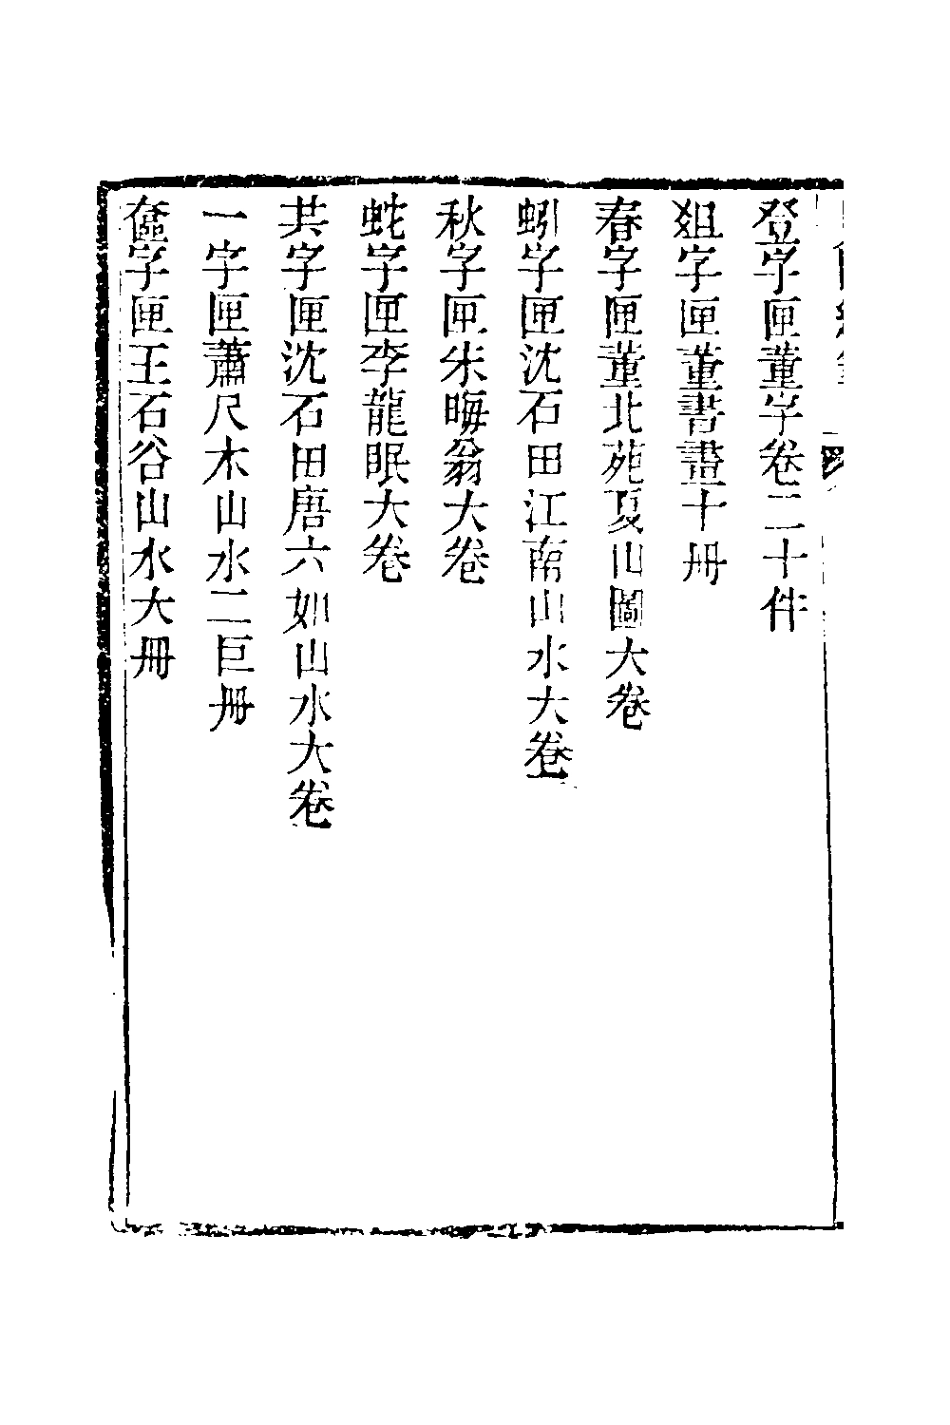 登字匣董字卷二十件
爼字匣董書畫十冊
春字匣董北苑夏山圖大卷
蚓字匣沈石田江南山水大卷
秋字匣朱晦翁大卷
蛇字匣李龍眠大卷
共字匣沈石田唐六如山水大卷
一字匣蕭尺木山水二巨冊
奩字匣王石谷山水大冊